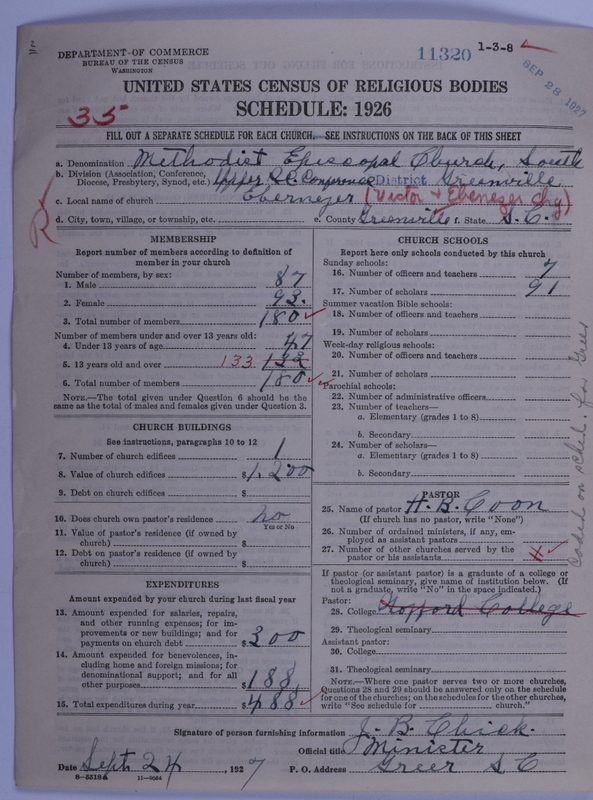 DEPARTMENT OF COMMERCE
BUREAU OF THE CENSUS
WASHINGTON
11320
1-3-8
SEP 28 1927
UNITED STATES CENSUS OF RELIGIOUS BODIES
SCHEDULE: 1926
35
FILL OUT A SEPARATE SCHEDULE FOR EACH CHURCH. SEE INSTRUCTIONS ON THE BACK OF THIS SHEET
a. Denomination Methodist Episcopal Church, South
b. Division (Association, Conference, Diocese, Presbytery, Synod, etc.) Upper S.C. Conference District Greenville
c. Local name of church Ebenezer (Victor & Ebenezer Chg)
d. City, town, village, or township, etc. e. County Greenville f. State S.C.
MEMBERSHIP
Report number of members according to definition of
member in your church
Number of members, by sex:
1. Male 87
2. Female 93.
3. Total number of members 180
Number of members under and over 13 years old:
4. Under 13 years of age 47
5. 13 years old and over 133
6. Total number of members 180
NOTE.—The total given under Question 6 should be
same as the total of males and females given under Question 3.
CHURCH BUILDINGS
See instructions, paragraphs 10 to 12
7. Number of church edifices 1
8. Value of church edifices $1,200
9. Debt on church edifices $
10. Does church own pastor's residence no
Yes or No
11. Value of pastor's residence (if owned by
church) $
12. Debt on pastor's residence (if owned by
church) $
EXPENDITURES
Amount expended by your church during last fiscal year
13. Amount expended for salaries, repairs,
and other running expenses; for im-
provements or new buildings; and for
payments on church debt $300
14. Amount expended for benevolences, in-
cluding home and foreign missions; for
denominational support; and for all
other purposes $188
15. Total expenditures during year $488
CHURCH SCHOOLS
Report here only schools conducted by this church
Sunday schools:
16. Number of officers and teachers 7
17. Number of scholars 91
Summer vacation Bible schools:
18. Number of officers and teachers
19. Number of scholars
Week-day religious schools:
20. Number of officers and teachers
21. Number of scholars
Parochial schools:
22. Number of administrative officers
23. Number of teachers—
a. Elementary (grades 1 to 8)
b. Secondary
24. Number of scholars—
a. Elementary (grades 1 to 8)
b. Secondary
PASTOR
25. Name of pastor H. B. Coon
(If church has no pastor, write "None")
26. Number of ordained ministers, if any, em-
ployed as assistant pastors
27. Number of other churches served by the
pastor or his assistants
If pastor (or assistant pastor) is a graduate of a college or
theological seminary, give name of institution below. (If
not a graduate, write "No" in the space indicated.)
Pastor:
28. College Wofford College
29. Theological seminary
Assistant pastor:
30. College
31. Theological seminary
NOTE.—Where one pastor serves two or more churches,
Questions 28 and 29 should be answered only on the schedule
for one of the churches; on the schedules for the other churches,
write "See schedule for church."
coded on sched. for Greer
Signature of person furnishing information J. B. Chick.
Official title Minister
Date Sept. 24, 1927 P. O. Address Greer S C
8-5518A 11-9034